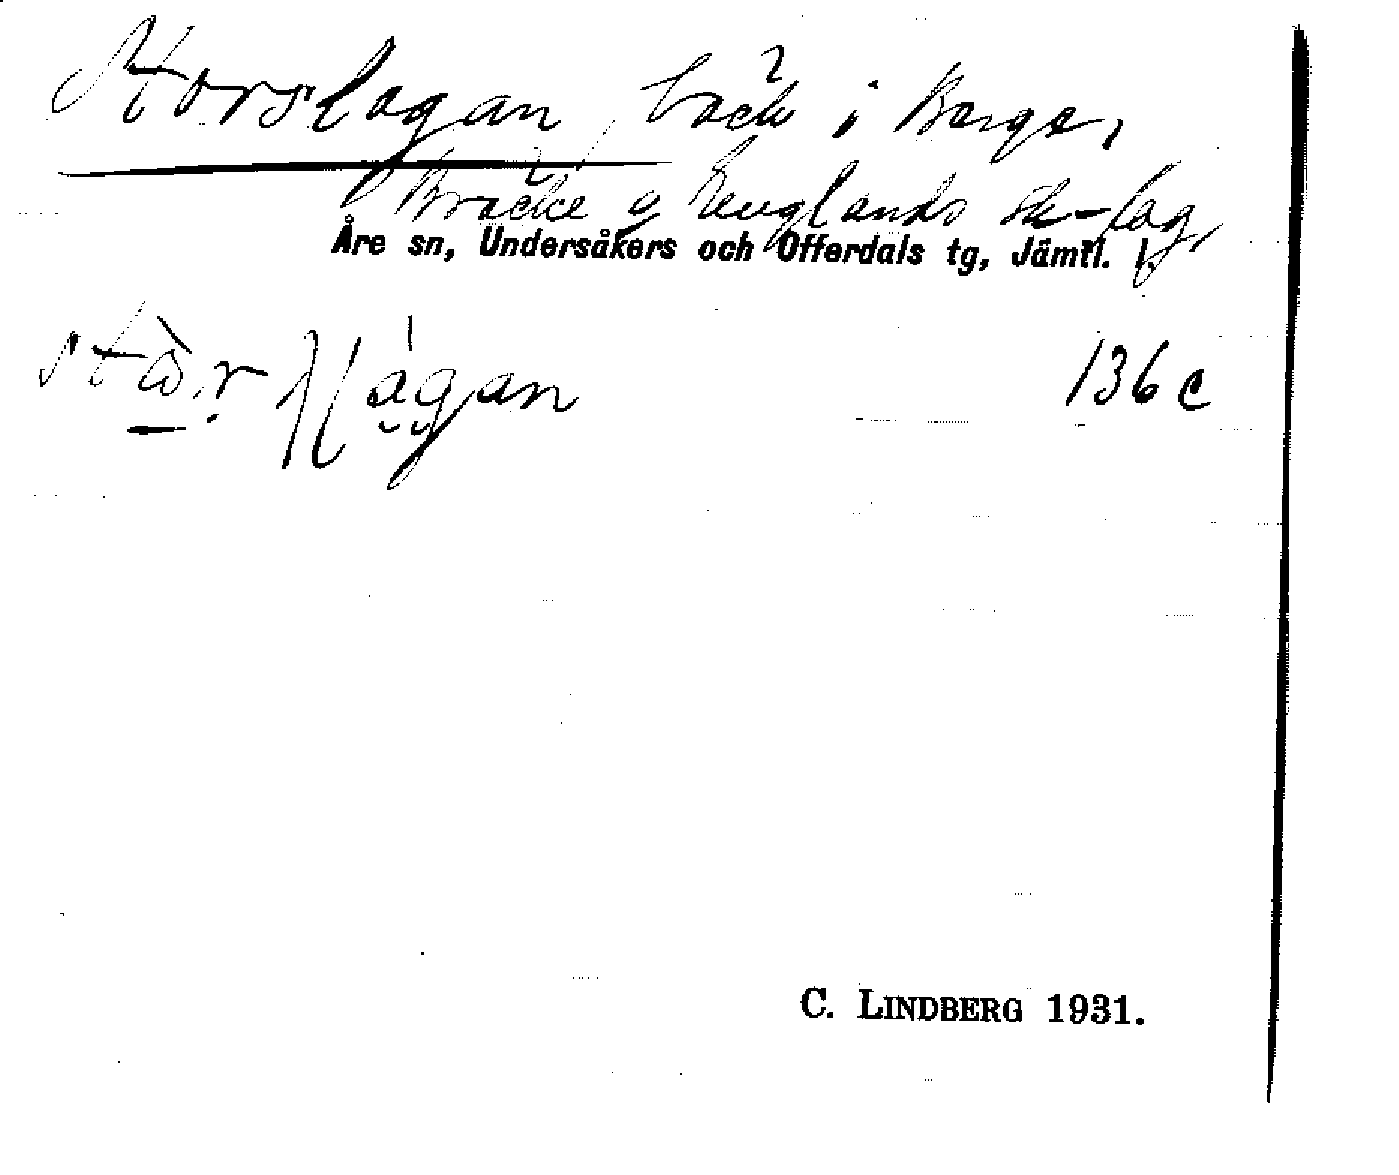 Storslagan, bäck i Berge,
Bräcke o Englands sk-lag,
Åre sn, Undersåkers och Offerdals tg, Jämtl. l.
136 c
C. LINDBERG 1931.